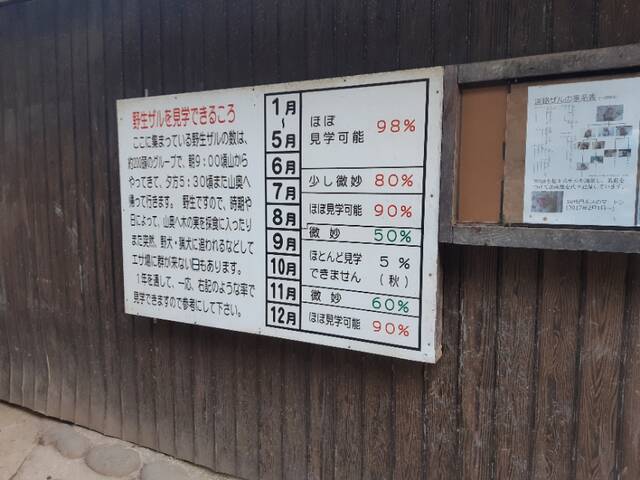 野生ザルを見学できるころ
ここに集まっている野生ザルの数は、
約200頭のグループで、朝9:00頃山から
やってきて、夕方5:30頃また山奥へ
帰って行きます。野生ですので、時期や
日によって、山奥へ木の実を採食に入ったり
また突然、野犬・猟犬に追われるなどして
エサ場に群が来ない日もあります。
1年を通して、一応、右記のような率で
見学できますので参考にして下さい。
1月
〜
5月
ほぼ
見学可能
98%
6月
7月
少し微妙 80%
8月
ほぼ見学可能 90%
9月
微妙 50%
10月
ほとんど見学
できません
5%
(秋)
11月
微妙 60%
12月
ほぼ見学可能 90%
淡路ザルの家系義